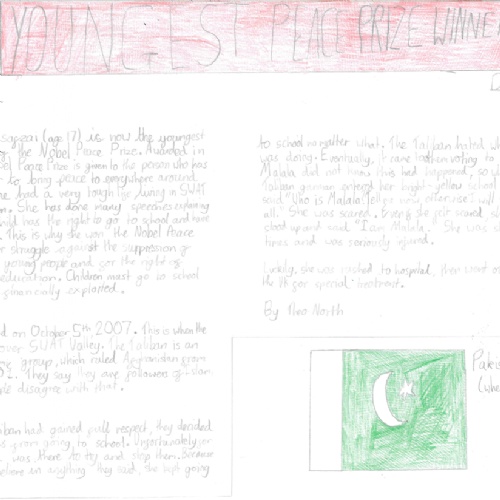 YOUNGEST PEACE PRIZE WINNE
(age 17) is now the youngest
the Nobel Peace Prize. Awarded in
Peace Prize is given to the person who has
to bring peace to everywhere around
had a very tough life living in SWAT
She has done many speeches explaining
has the right to go to school and have
This is why she won the Nobel Peace
struggle against the suppression of
young people and for the right of
education. Children must go to school
financially exploited.
on October 5th 2007. This is when the
over SWAT Valley. The Taliban is an
group, which ruled Afghanistan from
They say they are followers of Islam
disagree with that.
had gained full respect, they decided
from going to school. Unfortunately
was there to try and stop them. Because
believe in anything they said, she kept going
to school no matter what. The Taliban hated wh
was doing. Eventually, it came to them voting to
Malala did not know this had happened, so wh
Taliban gunman entered her bright-yellow school
said "Who is Malala? Tell me now, otherwise I will
all." She was scared. Even if she felt scared, s
stood up and said "I am Malala." She was s
times and was seriously injured.
Luckily, she was rushed to hospital, then went o
the UK for special treatment.
By Theo North
Pakis
(whe